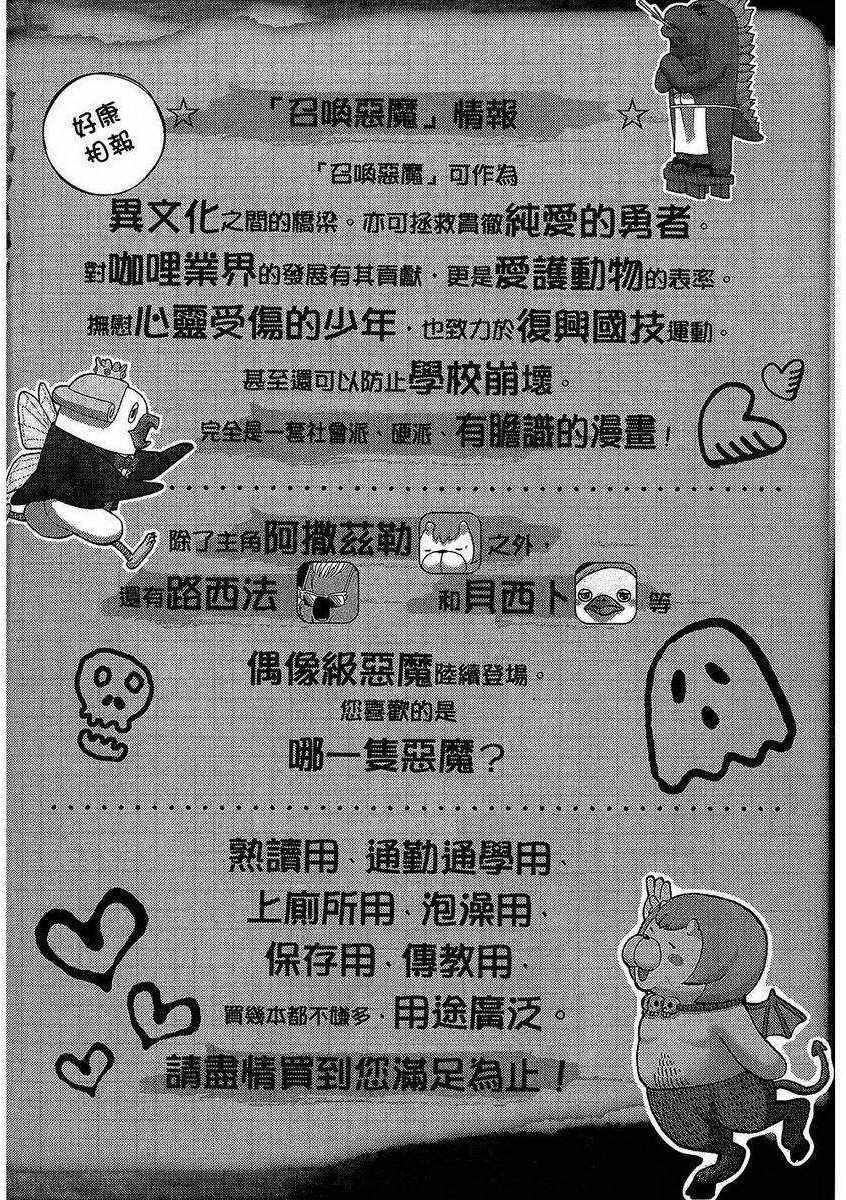 好康
相報
☆「召喚惡魔」情報☆
「召喚惡魔」可作為
異文化之間的橋梁。亦可拯救貫徹純愛的勇者。
對咖哩業界的發展有其貢獻，更是愛護動物的表率。
撫慰心靈受傷的少年，也致力於復興國技運動。
甚至還可以防止學校崩壞。
完全是一套社會派、硬派、有膽識的漫畫！
除了主角阿撒茲勒之外，
還有路西法和貝西卜等
偶像級惡魔陸續登場。
您喜歡的是
哪一隻惡魔？
熟讀用、通勤通學用、
上廁所用、泡澡用、
保存用、傳教用，
買幾本都不嫌多，用途廣泛。
請盡情買到您滿足為止！